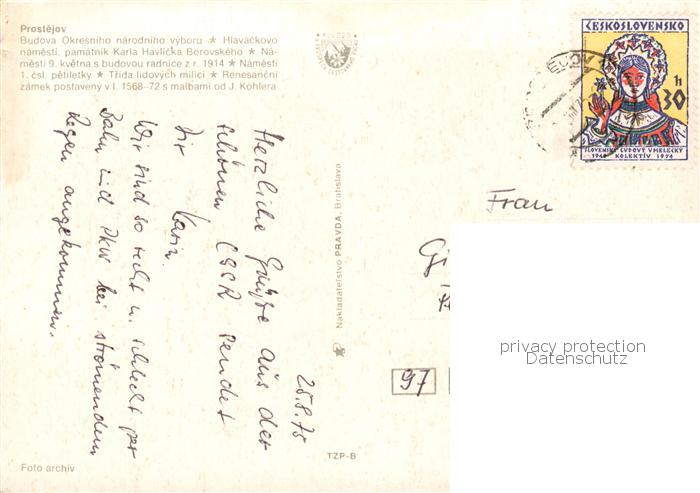 Prostějov
Budova Okresního národního výboru ★ Hlaváčkovo
náměstí, památník Karla Havlíčka Borovského ★ Ná-
městí 9. května s budovou radnice z r. 1914 ★ Náměstí
1. čsl. pětiletky ★ Třída lidových milicí ★ Renesanční
zámek postavený v l. 1568–72 s malbami od J. Köhlera
25.8.75
Herzliche Grüße aus der
schönen ČSSR sendet
Dir Karin.
Wir sind so recht u. schlecht per
Bahn und PKW bei strömendem
Regen angekommen.
Foto archiv
Nakladatelstvo PRAVDA, Bratislava
TZP-B
ČESKOSLOVENSKO
30 h
SLOVENSKÝ ĽUDOVÝ UMELECKÝ
KOLEKTÍV 1974
Frau
97
privacy protection
Datenschutz